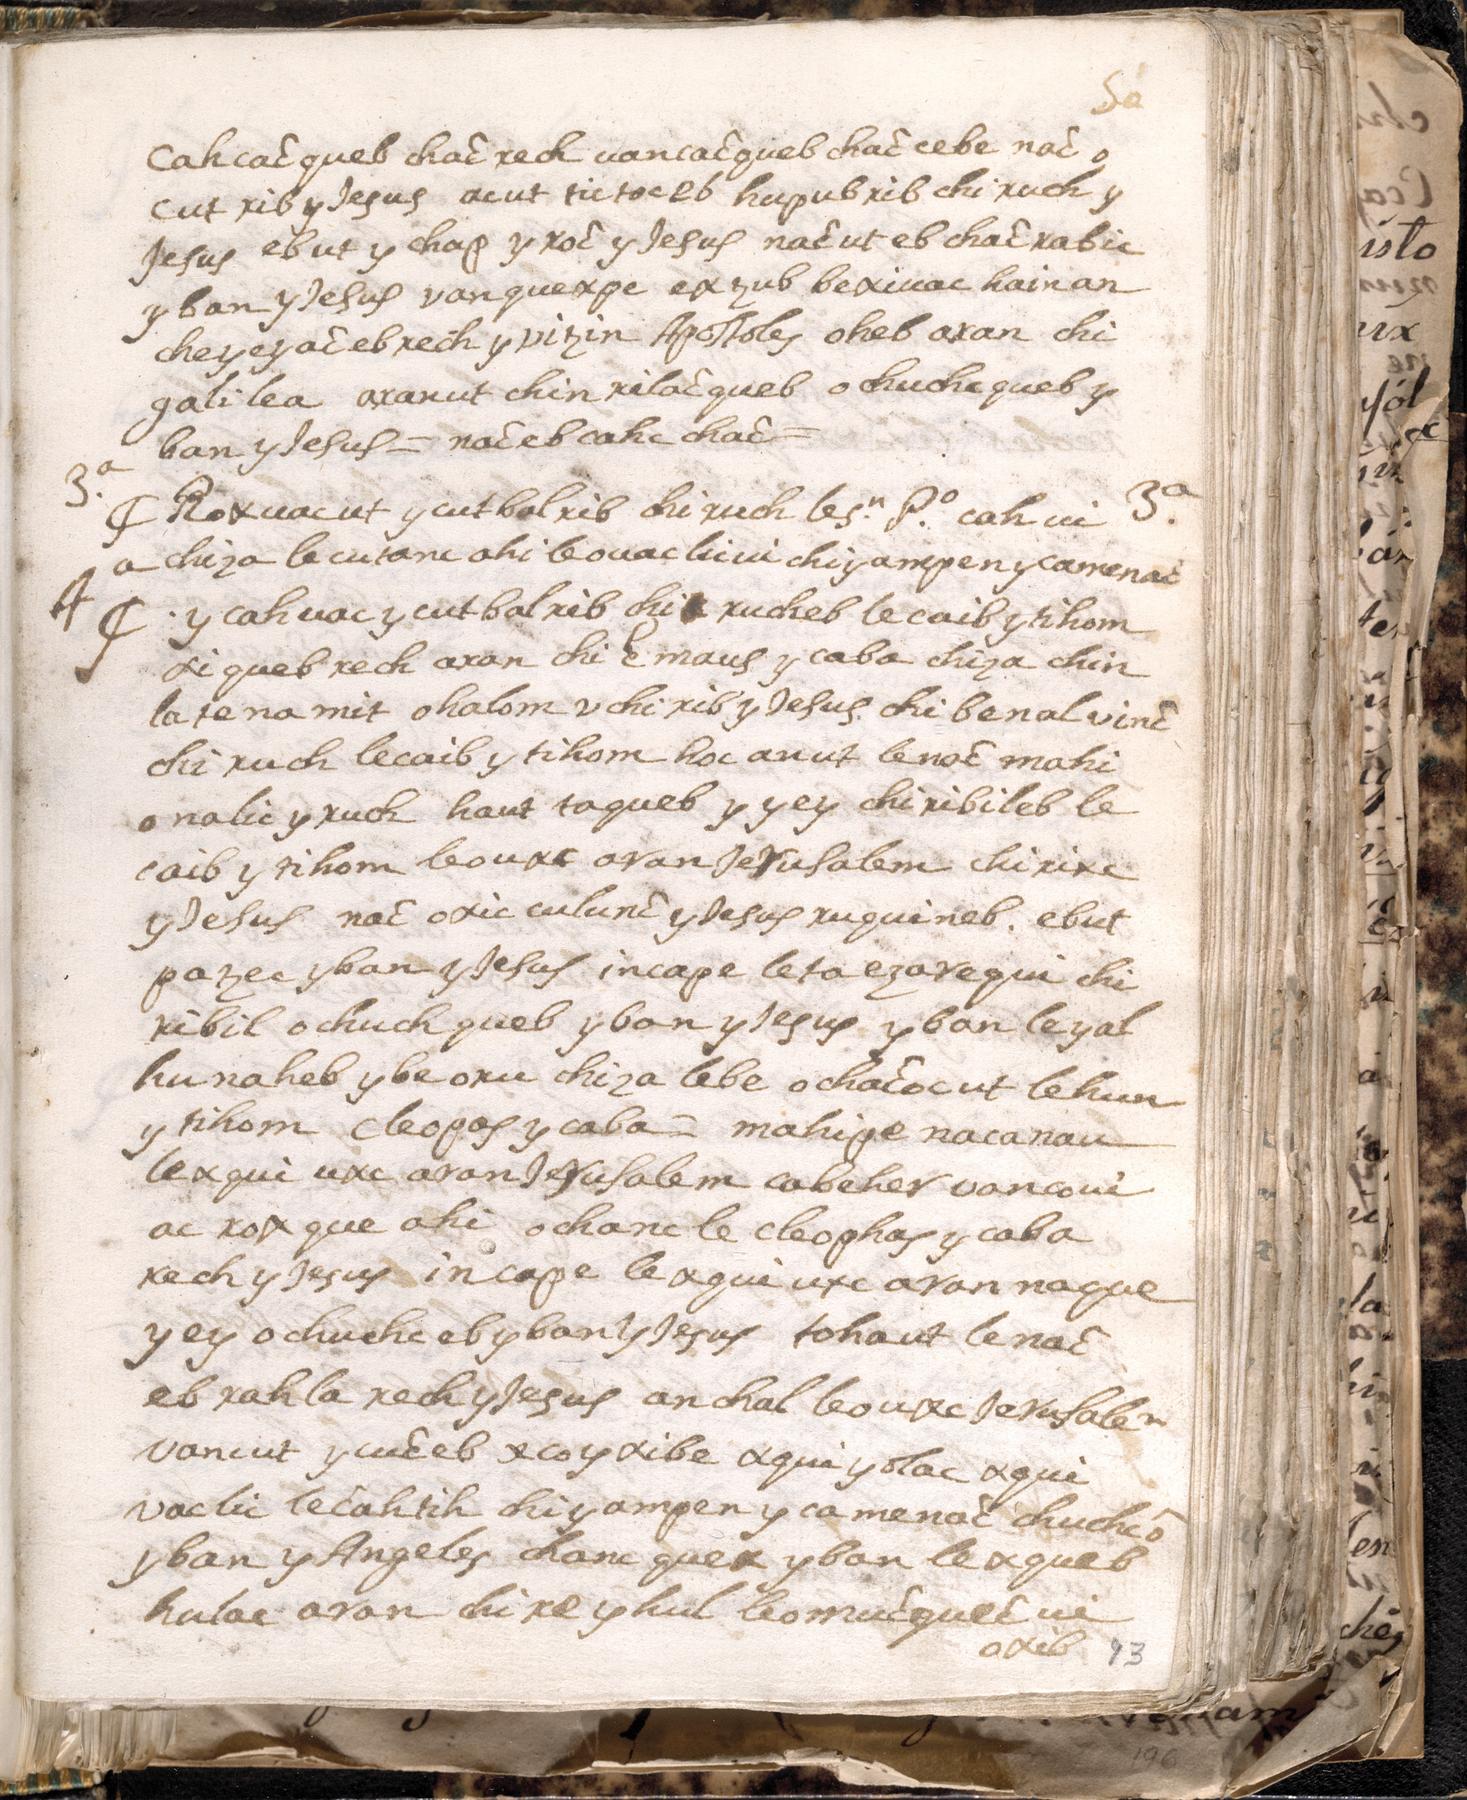 50
cahcac̃ queb chac̃ rech vancac̃queb chac̃ cebe nac̃ o
cut rib y Jesus acut tictoc eb hupub rib chi ruch y
Jesus ebut y chap y roc̃ y Jesus nac̃ ut eb chac̃ rabic
y ban y Jesus vanquexpe extzub bexiuac hainan
cheyeyac̃ eb rech y vitzin Apostoles oheb aran chi
galilea aranut chin rilac̃queb ochuchcqueb y
ban y Jesus = nac̃ eb cahc chac̃ =
3.ª ₵ Roxuacut y cutbalrib chi ruch le s.ⁿ P.º cah ui 3.ª
a chiza lecutanc ahi leouac lic ui chiyampen y camenac̃
4 ₵ · y cah uac y cutbalrib chi rucheb le caib y tihom
xi queb rech aran chi Emaus y caba chiza chin
la tenamit ohalom vchi rib y Jesus chi benal vinc̃
chi ruch le caib y tihom hoc anut le nac̃ mahi
onalic y ruch haut taqueb y yey chi ribileb le
caib y tihom leouxc aran Jerusalem chi rixc
y Jesus nac̃ oxic culunc̃ y Jesus ruquineb. ebut
patzec y ban y Jesus incape leta ezarequi chi
ribil ochuch queb y ban y Jesus y ban le yal
hunaheb y be oxu chiza lebe ochac̃ocut le hun
y tihom Cleopas y caba = mahipe nacanau
lexqui uxc aran Jerusalem cabeher vancoui
ac roxque ahi ochanc le cleophas y caba
rech y Jesus incape lexqui uxc aran naque
yey ochuchc eb y ban y Jesus tohaut le nac̃
eb rahla rech y Jesus anchal leouxc Jerusalem
vancut y cuc̃eb xcoy xibe xqui y olac xqui
vaclic lec̃ahtih chiyampen y camenac̃ chuchc̃ o
y ban y Angeles chanc quex y ban le xqueb
hulac aran chi re y hul leomuc̃quec̃ ui
oxib 93